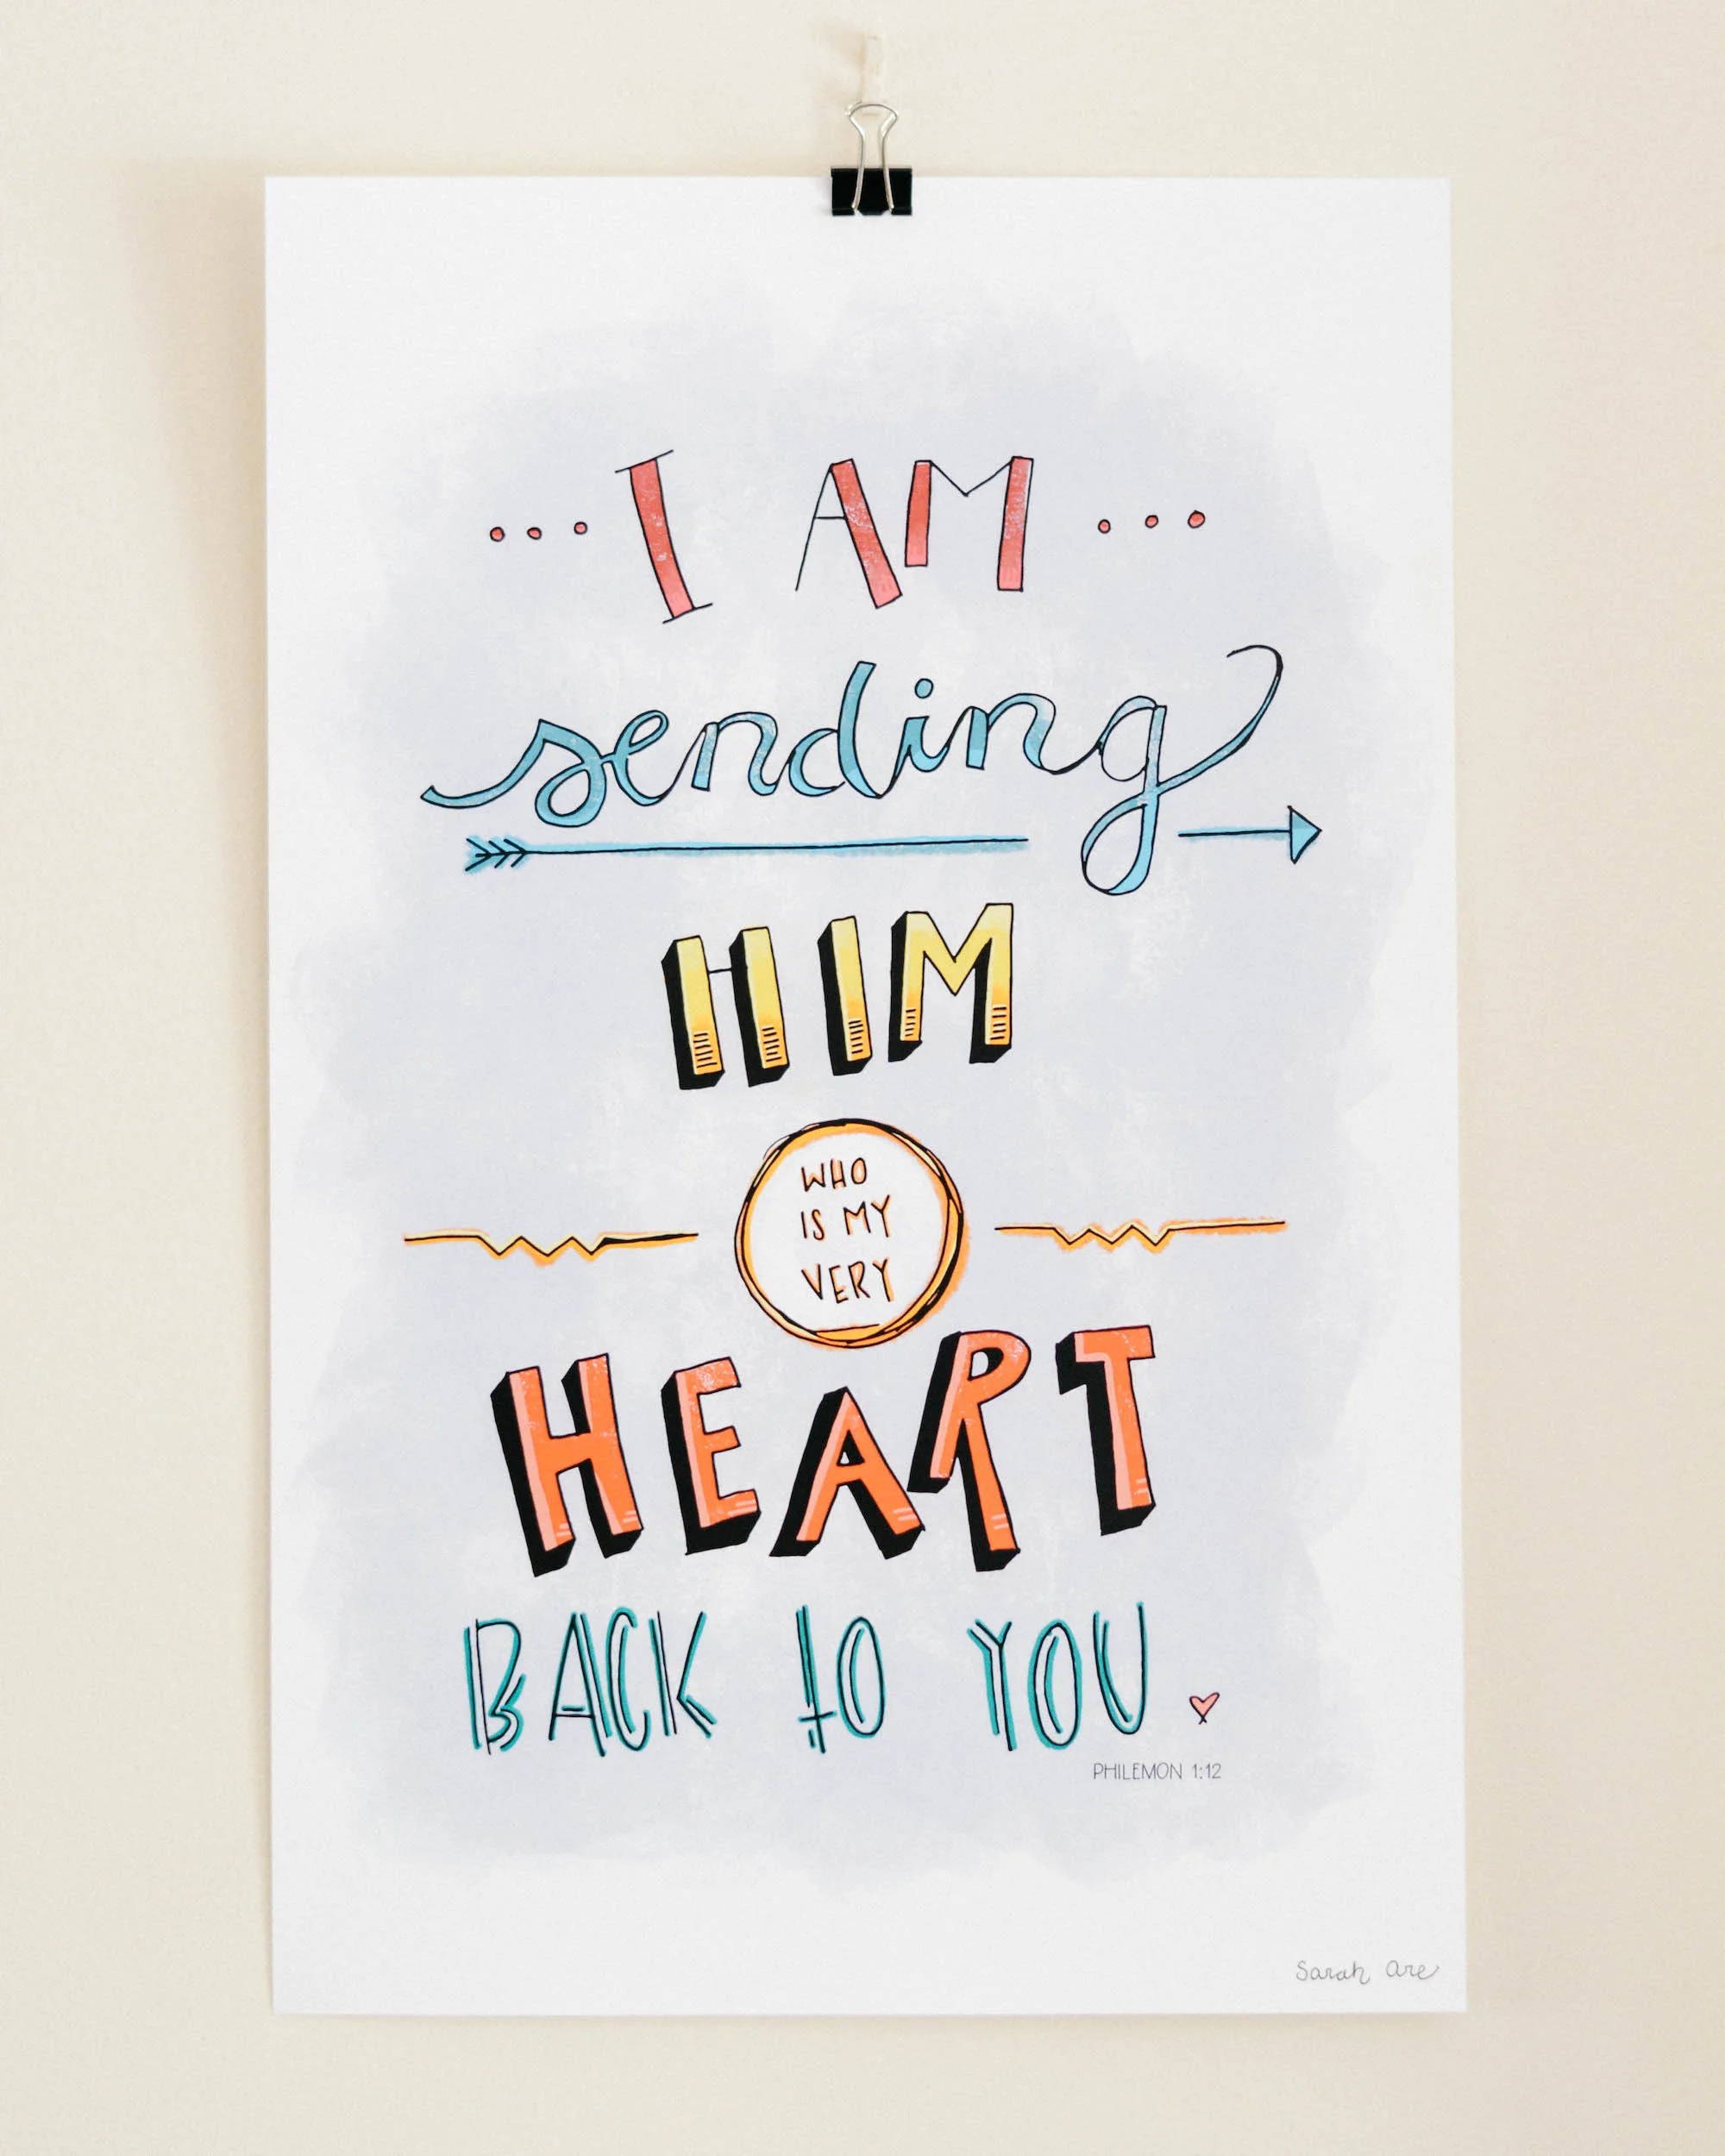 ... I AM ...
sending
HIM
WHO
IS MY
VERY
HEART
BACK to YOU.
PHILEMON 1:12
Sarah Are